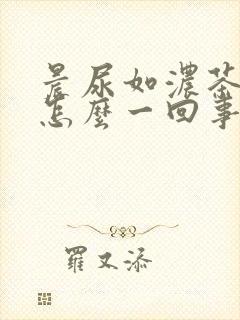 晨尿如濃茶
怎麼一回事
羅又添